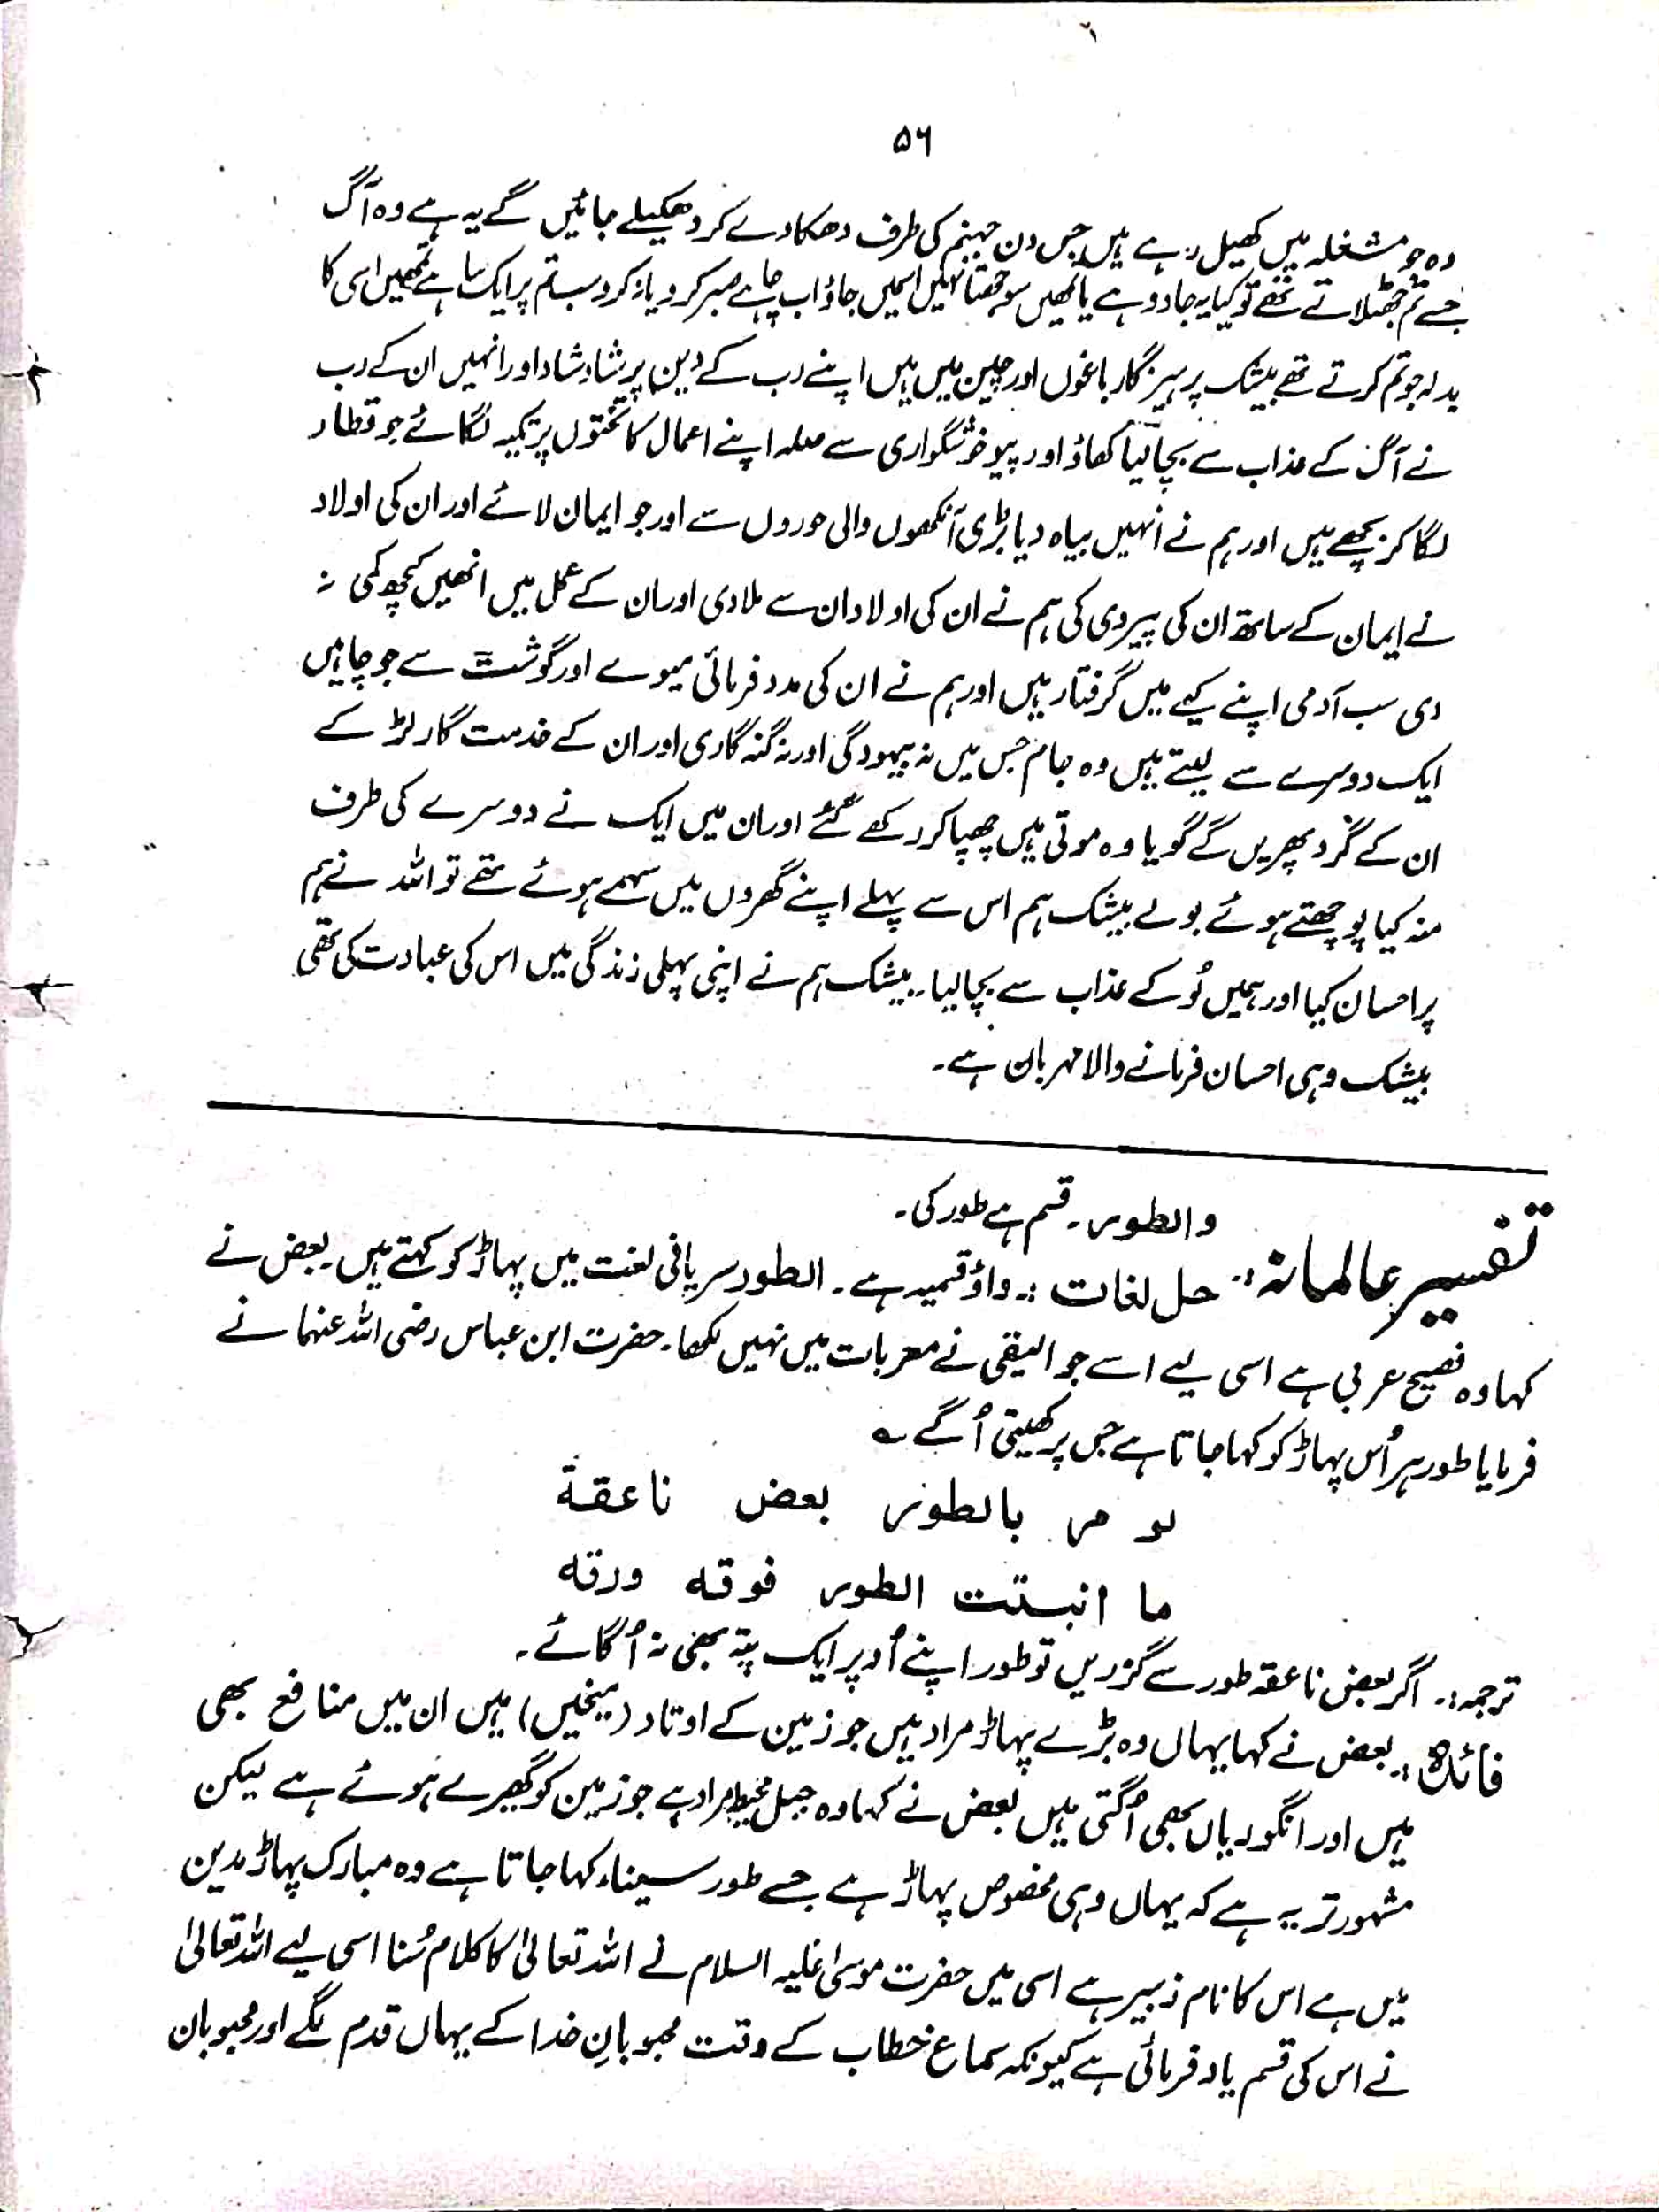 ۵۶
وہ جو مشغلہ میں کھیل رہے ہیں جس دن جہنم کی طرف دھکا دے کر دھکیلے جائیں گے یہ ہے وہ آگ
جسے تم جھٹلاتے تھے تو کیا یہ جادو ہے یا تمھیں سوجھتا نہیں اسمیں جاؤ اب چاہے صبر کرو یا نہ کرو سب تم پر ایک سا ہے تمھیں اسی کا
بدلہ جو تم کرتے تھے بیشک پرہیزگار باغوں اور چین میں ہیں اپنے رب کے دین پر شاد شاد اور انہیں ان کے رب
نے آگ کے عذاب سے بچا لیا کھاؤ اور پیو خوشگواری سے صلہ اپنے اعمال کا تختوں پر تکیہ لگائے جو قطار
لگا کر بچھے ہیں اور ہم نے انہیں بیاہ دیا بڑی آنکھوں والی حوروں سے اور جو ایمان لائے اور ان کی اولاد
نے ایمان کے ساتھ ان کی پیروی کی ہم نے ان کی اولاد ان سے ملا دی اور ان کے عمل میں انھیں کچھ کمی نہ
دی سب آدمی اپنے کیے میں گرفتار ہیں اور ہم نے ان کی مدد فرمائی میوے اور گوشت سے جو چاہیں
ایک دوسرے سے لیتے ہیں وہ جام جس میں نہ بیہودگی اور نہ گنہ گاری اور ان کے خدمت گار لڑکے
ان کے گرد پھریں گے گویا وہ موتی ہیں چھپا کر رکھے گئے اور ان میں ایک نے دوسرے کی طرف
منہ کیا پوچھتے ہوئے بولے بیشک ہم اس سے پہلے اپنے گھروں میں سہمے ہوئے تھے تو اللہ نے ہم
پر احسان کیا اور ہمیں لُو کے عذاب سے بچا لیا۔ بیشک ہم نے اپنی پہلی زندگی میں اس کی عبادت کی تھی
بیشک وہی احسان فرمانے والا مہربان ہے۔
والطور۔ قسم ہے طور کی۔
تفسیر عالمانہ:۔ حل لغات :۔ واؤ قسمیہ ہے۔ الطور سریانی لغت میں پہاڑ کو کہتے ہیں۔ بعض نے
کہا وہ فصیح عربی ہے اسی لیے اسے جوالیقی نے معربات میں نہیں لکھا۔ حضرت ابن عباس رضی اللہ عنہما نے
فرمایا طور ہر اُس پہاڑ کو کہا جاتا ہے جس پر کھیتی اُگے ؎
لو مر بالطور بعض ناعقة
ما انبتت الطور فوقه ورقه
ترجمہ:۔ اگر بعض ناعقہ طور سے گزریں تو طور اپنے اُوپر ایک پتہ بھی نہ اُگائے۔
فائدہ:۔ بعض نے کہا یہاں وہ بڑے پہاڑ مراد ہیں جو زمین کے اوتاد (میخیں) ہیں ان میں منافع بھی
ہیں اور انگوریاں بھی اُگتی ہیں بعض نے کہا وہ جبل محیط مراد ہے جو زمین کو گھیرے ہوئے ہے لیکن
مشہور تر یہ ہے کہ یہاں وہی مخصوص پہاڑ ہے جسے طور سیناء کہا جاتا ہے وہ مبارک پہاڑ مدین
میں ہے اس کا نام زبیر ہے اسی میں حضرت موسیٰ علیہ السلام نے اللہ تعالیٰ کا کلام سُنا اسی لیے اللہ تعالیٰ
نے اس کی قسم یاد فرمائی ہے کیونکہ سماع خطاب کے وقت محبوبانِ خدا کے یہاں قدم لگے اور محبوبان